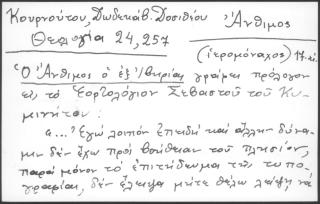 Κουρνούτου, Δωδεκάβ. Δοσιθέου Ἄνθιμος
Θεολογία 24, 257
(ἱερομόναχος)
Ὁ Ἄνθιμος ὁ ἐξ Ἰβηρίας γράφει πρόλογον
εἰς τὸ Ἑορτολόγιον Σεβαστοῦ τοῦ Κυ-
μινήτου:
«... Ἐγὼ λοιπὸν ἐπειδὴ καὶ ἄλλην δύνα-
μιν δὲν ἔχω πρὸς βοήθειαν τοῦ πλησίον,
παρὰ μόνον τὸ ἐπιτήδευμα τῆς τυπο-
γραφίας, δὲν ἔλειψα μήτε θέλω λείψῃ νὰ